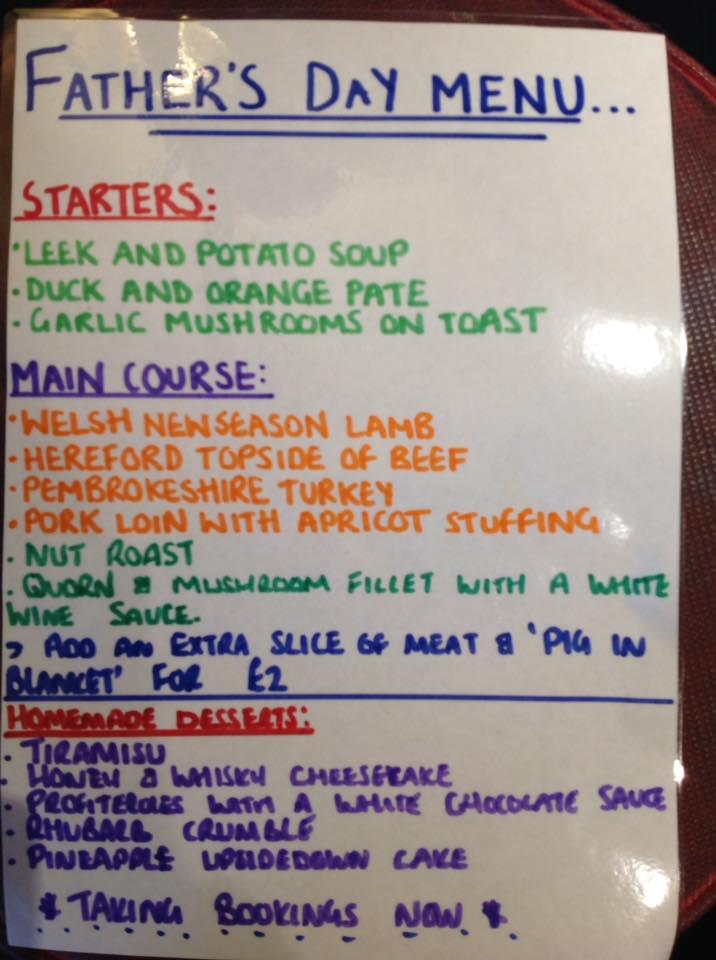 FATHER'S DAY MENU...
STARTERS:
• LEEK AND POTATO SOUP
• DUCK AND ORANGE PATE
• GARLIC MUSHROOMS ON TOAST
MAIN COURSE:
• WELSH NEWSEASON LAMB
• HEREFORD TOPSIDE OF BEEF
• PEMBROKESHIRE TURKEY
• PORK LOIN WITH APRICOT STUFFING
• NUT ROAST
• QUORN & MUSHROOM FILLET WITH A WHITE
WINE SAUCE.
> ADD AN EXTRA SLICE OF MEAT & 'PIG IN
BLANKET' FOR £2
HOMEMADE DESSERTS:
• TIRAMISU
• HONEY & WHISKY CHEESECAKE
• PROFITEROLES WITH A WHITE CHOCOLATE SAUCE
• RHUBARB CRUMBLE
• PINEAPPLE UPSIDEDOWN CAKE
* TAKING BOOKINGS NOW *